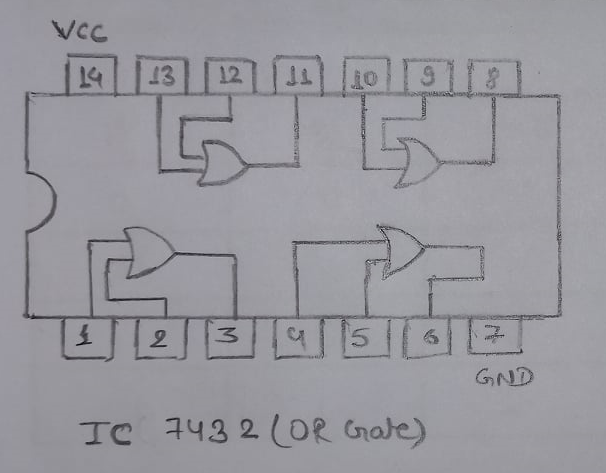 VCC
14 13 12 11 10 9 8
1 2 3 4 5 6 7
GND
IC 7432 (OR Gate)